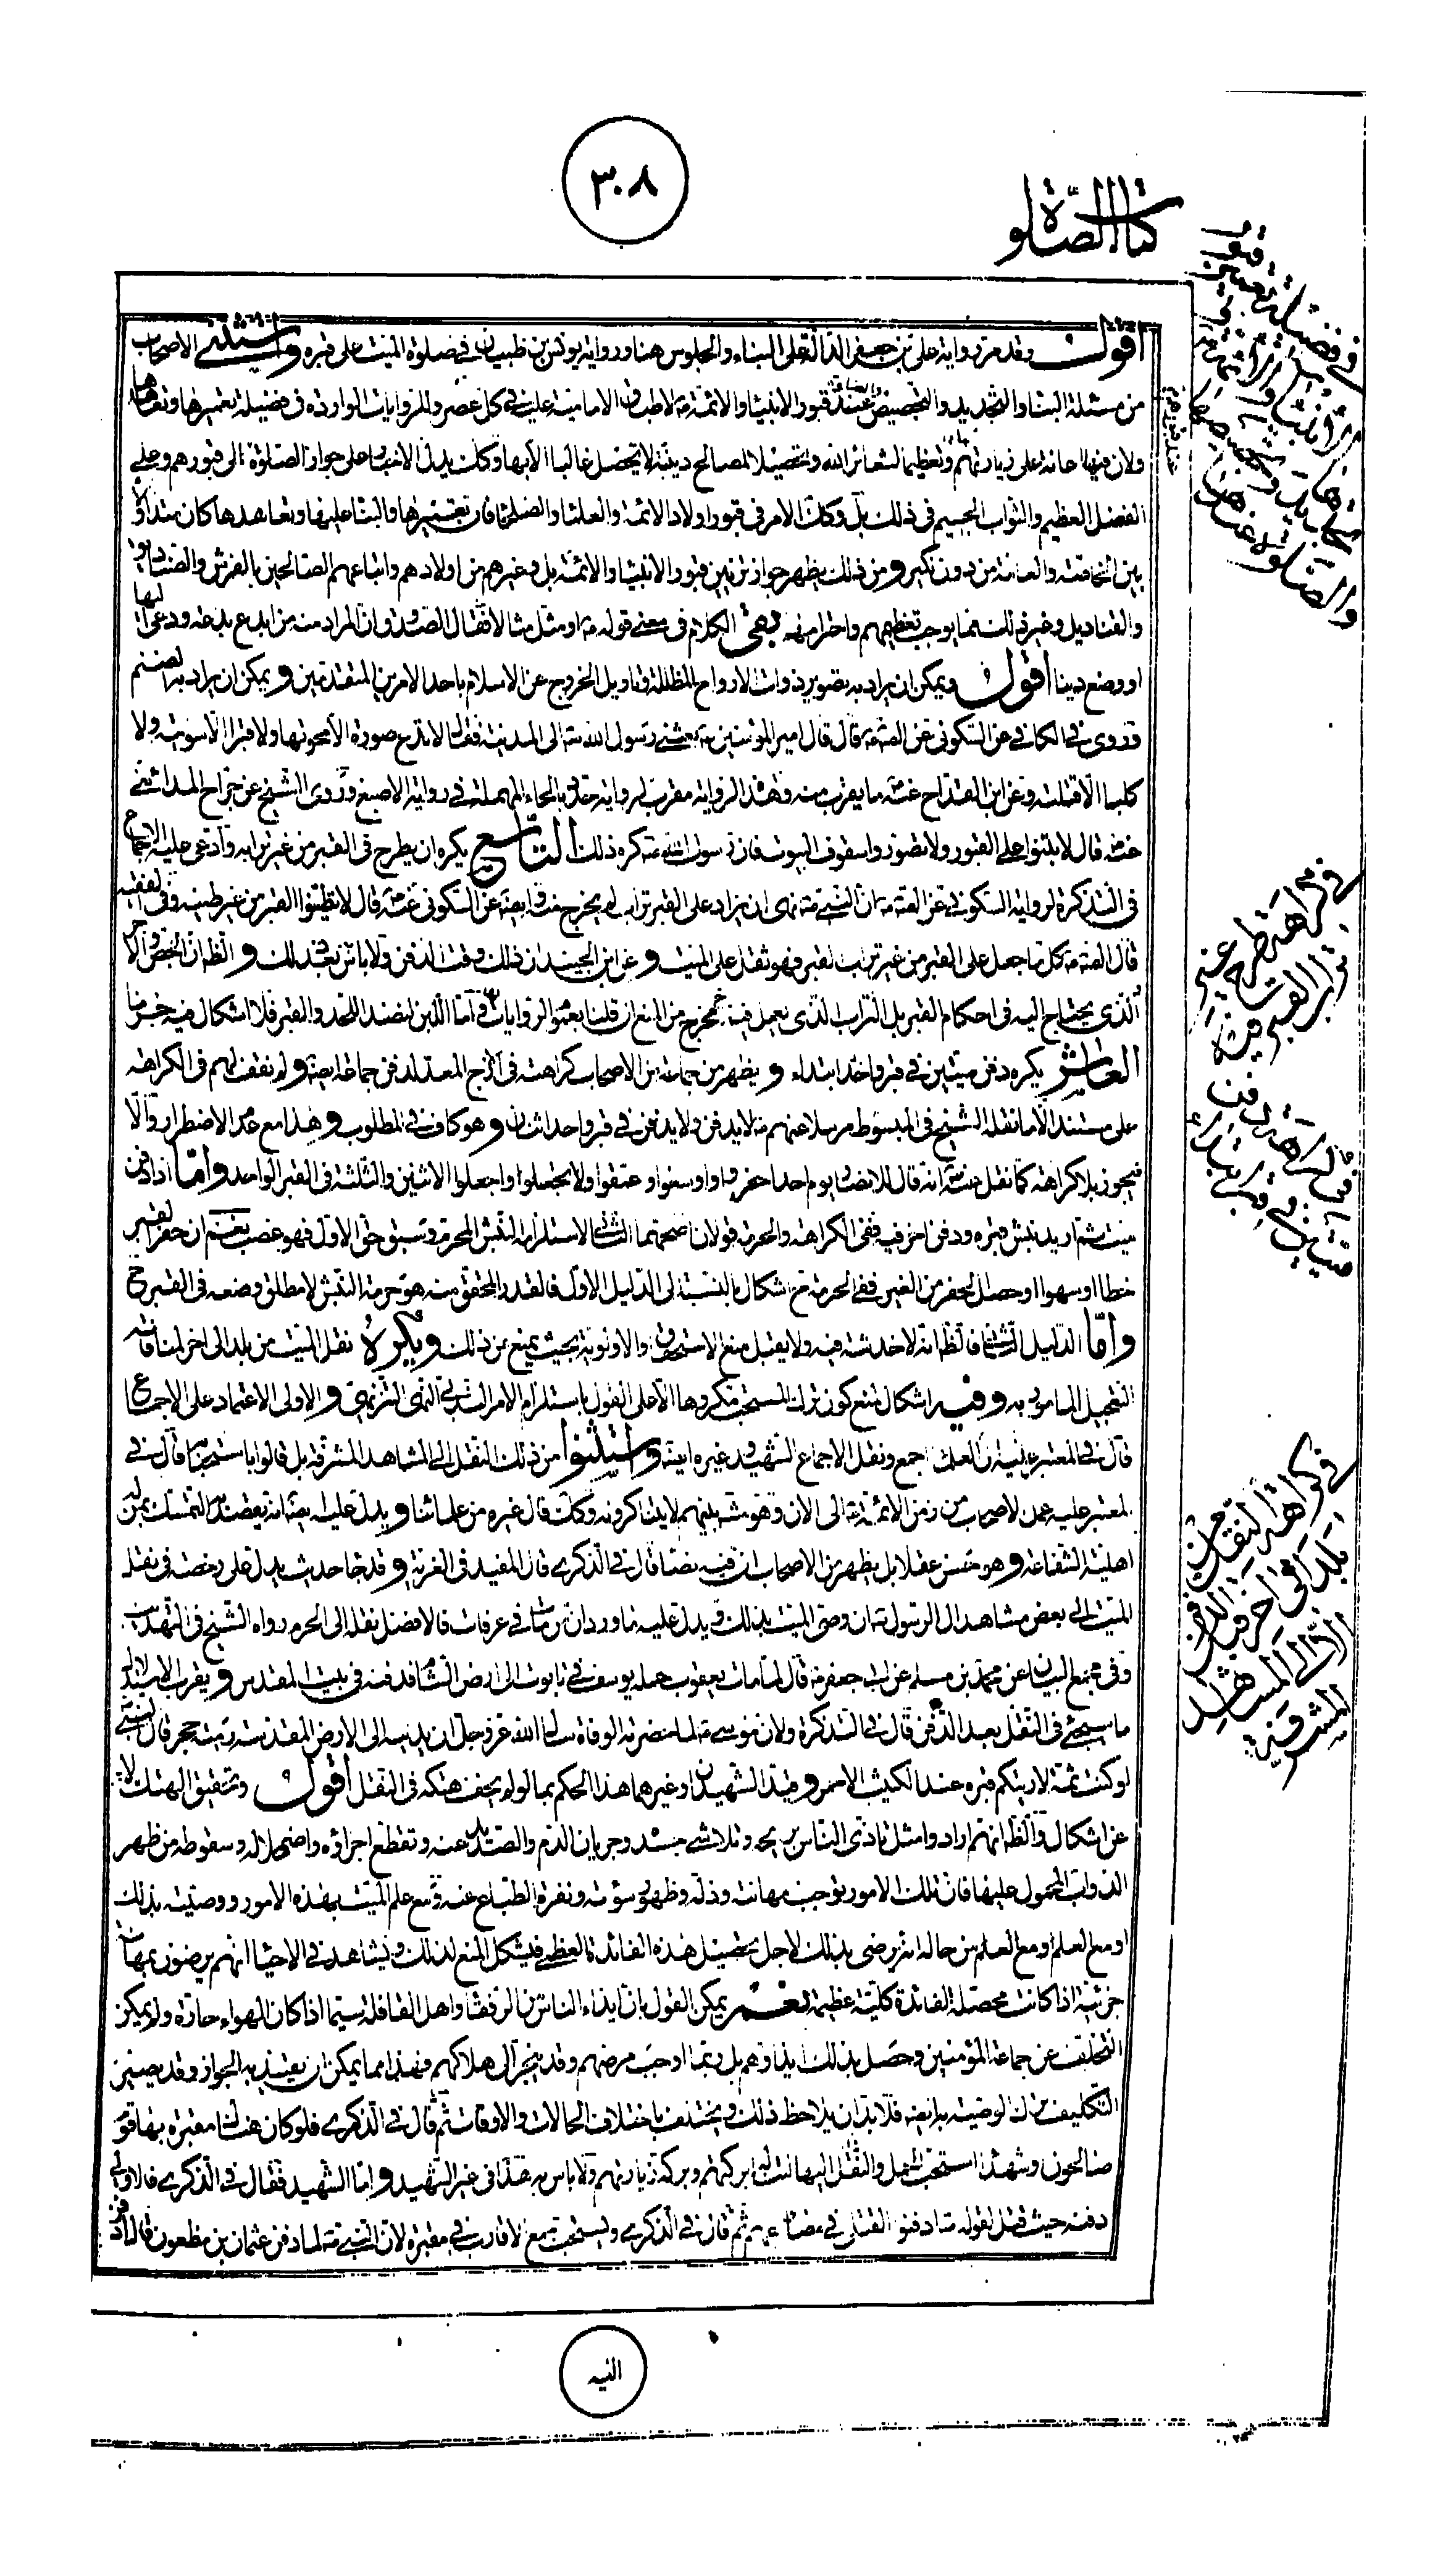 ٣٠٨
كتاب الصلوة
اقول وقد مر رواية على بن جعفر الدالة على البناء والجلوس هنا ورواية يونس بن ظبيان فى صلوة الميت على قبره واستثنى الاصحاب
من مسئلة البناء والتجديد والتجصيص عنده قبور الانبياء والائمة لاطباق الامامية عليه فى كل عصر وللروايات الواردة فى فضيلة تعميرها وتعاهدها
ولان فيها اعانة على زيارتهم وتعظيما لشعائر الله وتحصيلا لمصالح دينية لا تحصل غالبا الا بها وكك يدل الاخبار على جواز الصلوة الى قبورهم وعلى
الفضل العظيم والثواب الجسيم فى ذلك بل وكك الامر فى قبور اولاد الائمة والعلماء والصلحاء فان تعميرها والبناء عليها وتعاهدها كان متداولا
بين الخاصة والعامة من دون نكير ومن ذلك يظهر جواز تزيين قبور الانبياء والائمة بل وغيرهم من اولادهم واتباعهم الصالحين بالفرش والصناديق
والقناديل وغير ذلك مما يوجب تعظيمهم واحترامهم بقى الكلام فى معنى قوله او مثل مثالا فقال الصدوق ان المراد منه من ابدع بدعة ودعى اليها
او وضع دينا اقول ويمكن ان يراد به تصوير ذوات الارواح المظللة وتاويل الخروج عن الاسلام باحد الامرين المتقدمين ويمكن ان يراد به الصنم
وروى فى الكافى عن السكونى عن الصة قال قال امير المؤمنين بعثنى رسول الله الى المدينة فقال لا تدع صورة الا محوتها ولا قبرا الا سويته ولا
كلبا الا قتلته وعن ابن القداح عنه ما يقرب منه وهذه الرواية مقرب لرواية حدد بالحاء المهملة فى رواية الاصبغ وروى الشيخ عن جراح المداينى
عنه قال لا تبنوا على القبور ولا تصوروا سقوف البيوت فان رسول الله كره ذلك التاسع يكره ان يطرح فى القبر من غير ترابه وادعى عليه الاجماع
فى التذكرة لرواية السكونى عن الصة ان النبى نهى ان يزاد على القبر تراب لم يخرج منه وايضا عن السكونى عنه قال لا تطينوا القبر من غير طينه وفى الفقيه
قال الصة كل ما جعل على القبر من غير تراب القبر فهو ثقل على الميت وعن ابن الجنيد ان ذلك وقت الدفن ولا باس بعد ذلك والظ ان الجص والاجر
الذى يحتاج اليه فى احكام القبر بل التراب الذى يعمل فيه مخرج من المنع ان قلنا بعموم الروايات واما اللبن لنضد اللحد والقبر فلا اشكال فيه جزما
العاشر يكره دفن ميتين فى قبر واحد ابتداء ويظهر من جماعة من الاصحاب كراهته فى الازج المعد لدفن جماعة ايضا ولم نقف لهم فى الكراهة
على مستند الا ما نقله الشيخ فى المبسوط مرسلا عنهم لا يدفن فى قبر واحد اثنان وهو كاف فى المطلوب وهذا مع عدم الاضطرار والا
فيجوز بلا كراهة كما نقل عنه انه قال للانصار يوم احد احفروا واوسعوا وعمقوا واجعلوا الاثنين والثلثة فى القبر الواحد واما اذا دفن
ميت ثم اريد نبش قبره ودفن اخر فيه ففى الكراهة والحرمة قولان اصحهما الثانى لاستلزامه النبش المحرم وتسبق حق الاول فهو غصب نعم ان حفر القبر
خطاء او سهوا او حصل الحفر من الغير ففى الحرمة اشكال بالنسبة الى الدليل الاول فالقدر المحقق منه هو حرمة النبش لا مطلق وضعه فى القبر ح
واما الدليل الثانى فالظ انه لا حدشة فيه ولا يقبل منع الاستحقاق والاولوية بحيث يمنع من ذلك ويكره نقل الميت من بلد الى اخر لمنافاته
التعجيل المامور به وفيه اشكال لمنع كون ترك المستحب مكروها الا على القول باستلزام الامر الندبى النهى التنزيهى والاولى الاعتماد على الاجماع
قال فى المعتبر عليه العلماء اجمع ونقل الاجماع الشهيد وغيره ايضا واستثنوا من ذلك النقل الى المشاهد المشرفة بل قالوا باستحبابه قال فى
المعتبر عليه عمل الاصحاب من زمن الائمة الى الان وهو مشهور بينهم لا يتناكرونه وكك قال غيره من علمائنا ويدل عليه ايضا انه يقصد التمسك بمن له
اهلية الشفاعة وهو حسن عقلا بل يظهر من الاصحاب ان فيه نصا قال فى الذكرى قال المفيد فى الغرية وقد جاء حديث يدل على رخصة فى نقل
الميت الى بعض مشاهد ال الرسول ان وصى الميت بذلك ويدل عليه ما ورد ان من مات فى عرفات فالافضل نقله الى الحرم رواه الشيخ فى التهذيب
وفى مجمع البيان عن محمد بن مسلم عن ابى جعفر قال لما مات يعقوب حمله يوسف فى تابوت الى ارض الشام فدفنه فى بيت المقدس ويقرب الاستدلال
ما سيجئ فى النقل بعد الدفن قال فى التذكرة ولان موسى لما حضرته الوفاة سال الله عز وجل ان يدنيه الى الارض المقدسة رمية حجر قال النبى
لو كنت ثمة لاريتكم قبره عند الكثيب الاحمر وقيد الشهيدان وغيرهما هذا الحكم بما لو لم يخف هتكه فى النقل اقول وتحقيق الهتك لا يخ
عن اشكال والظ انهم ارادوا مثل تاذى الناس بريحه وتلاشى جسده وجريان الدم والصديد عنه وتقطع اجزاؤه واضمحلاله وسقوطه من ظهر
الدواب المحمول عليها فان تلك الامور يوجب مهانته وذلة وظهور سؤته ونفرة الطباع عنه ومع علم الميت بهذه الامور ووصيته بذلك
او مع العلم من حاله انه يرضى بذلك لاجل تحصيل هذه الفائدة العظمى فيشكل المنع لذلك ونشاهد فى الاحياء انهم يرضون بمهانة
جزئية اذا كانت محصلة لفائدة كلية عظيمة نعم يمكن القول بان ايذاء الناس من الرفقاء واهل القافلة سيما اذا كان الهواء حارة ولم يمكن
التخلف عن جماعة المؤمنين وحصل بذلك ايذاؤهم بل ربما اوجب مرضهم وقد ينجر الى هلاكهم فهذا مما يمكن ان يقيد به الجواز وقد يصير
التكليف ترك الوصية به ايضا فلا بد ان يلاحظ ذلك ويختلف باختلاف الحالات والاوقات ثم قال فى الذكرى فلو كان هناك مقبرة بها قوم
صالحون وشهداء استحب الحمل والنقل اليها لتناله بركتهم وبركة زيارتهم ولا باس به هذا فى غير الشهيد واما الشهيد فقال فى الذكرى فالاولى
دفنه حيث قتل لقوله ادفنوا القتلى فى مصارعهم ثم قال فى الذكرى ويستحب جمع الاقارب فى مقبرة لان النبى لما دفن عثمان بن مظعون قال ادفن
اليه
فى فضيلة تعمير قبور
فى كراهة طرح غير
تراب القبر فيه
فى كراهة دفن
ميتين فى قبر
فى كراهة النقل من
بلد الى اخر قبل الدفن
الا الى المشاهد
المشرفة